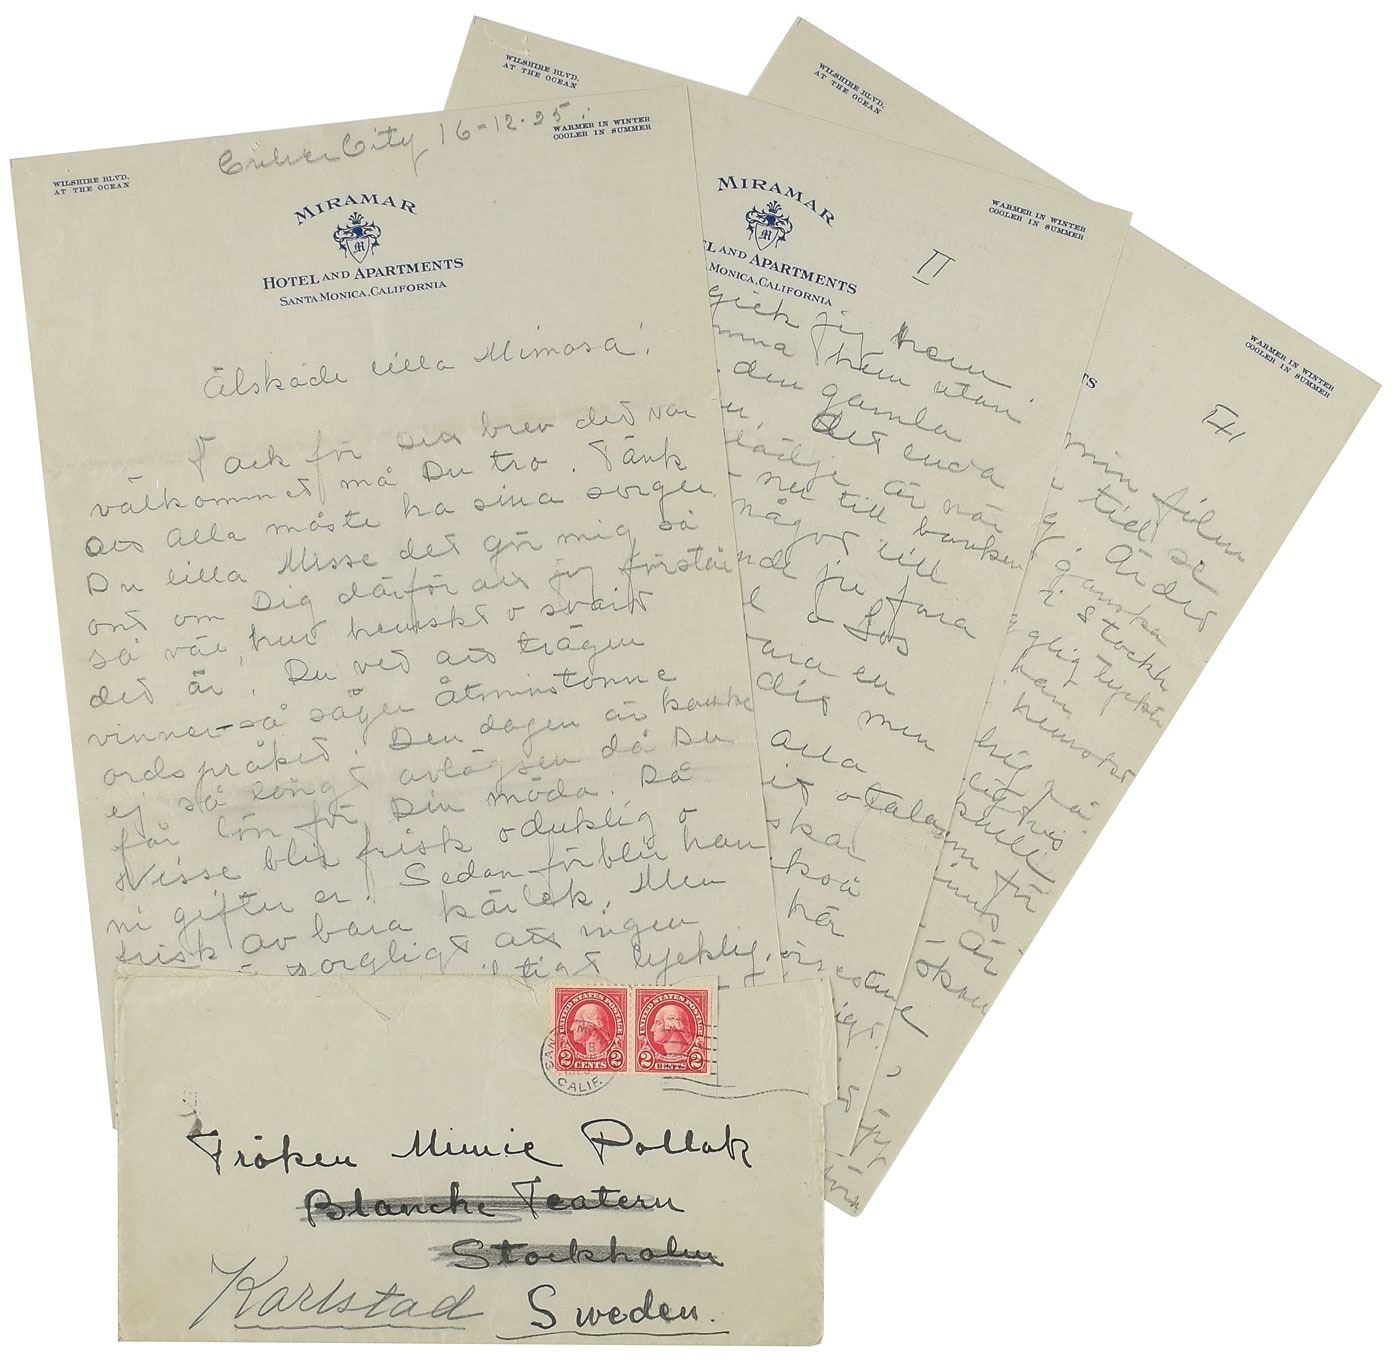 Culver City 16-12-25.
WILSHIRE BLVD.
AT THE OCEAN
WARMER IN WINTER
COOLER IN SUMMER
MIRAMAR
M
HOTEL AND APARTMENTS
SANTA MONICA, CALIFORNIA
Älskade lilla Mimosa!
Tack för ditt brev det var
välkommet må Du tro. Tänk
att alla måste ha sina sorger
Du lilla Misse det gör mig så
ont om Dig därför att jag förstår
så väl, hur hemskt o svårt
det är. Du vet att trägen
vinner - så säger åtminstonne
ordspråket. Den dagen är kanske
ej så långt avlägsen då Du
får lön för Din möda. Då
Nisse blir frisk o duktig o
ni gifter er. Sedan förblir han
frisk av bara kärlek. Men
sorgligt att ingen
lycklig.
WILSHIRE BLVD.
AT THE OCEAN
WARMER IN WINTER
COOLER IN SUMMER
MIRAMAR
M
EL AND APARTMENTS
MONICA, CALIFORNIA
II
gick jag hem
hem utan
den gamla
Det enda
är när
nu till banken
något till
ju fara
o Los
vara en
men
alla
o tala
skal
här
WILSHIRE BLVD.
AT THE OCEAN
WARMER IN WINTER
COOLER IN SUMMER
TS
min film
tid se
Är det
ganska
i Stockh.
tycker
han
hemskt
på
för
är
UNITED STATES POSTAGE
2 CENTS 2
UNITED STATES POSTAGE
2 CENTS 2
CALIF.
Fröken Mimie Pollak
Blanche Teatern
Stockholm
Karlstad Sweden.